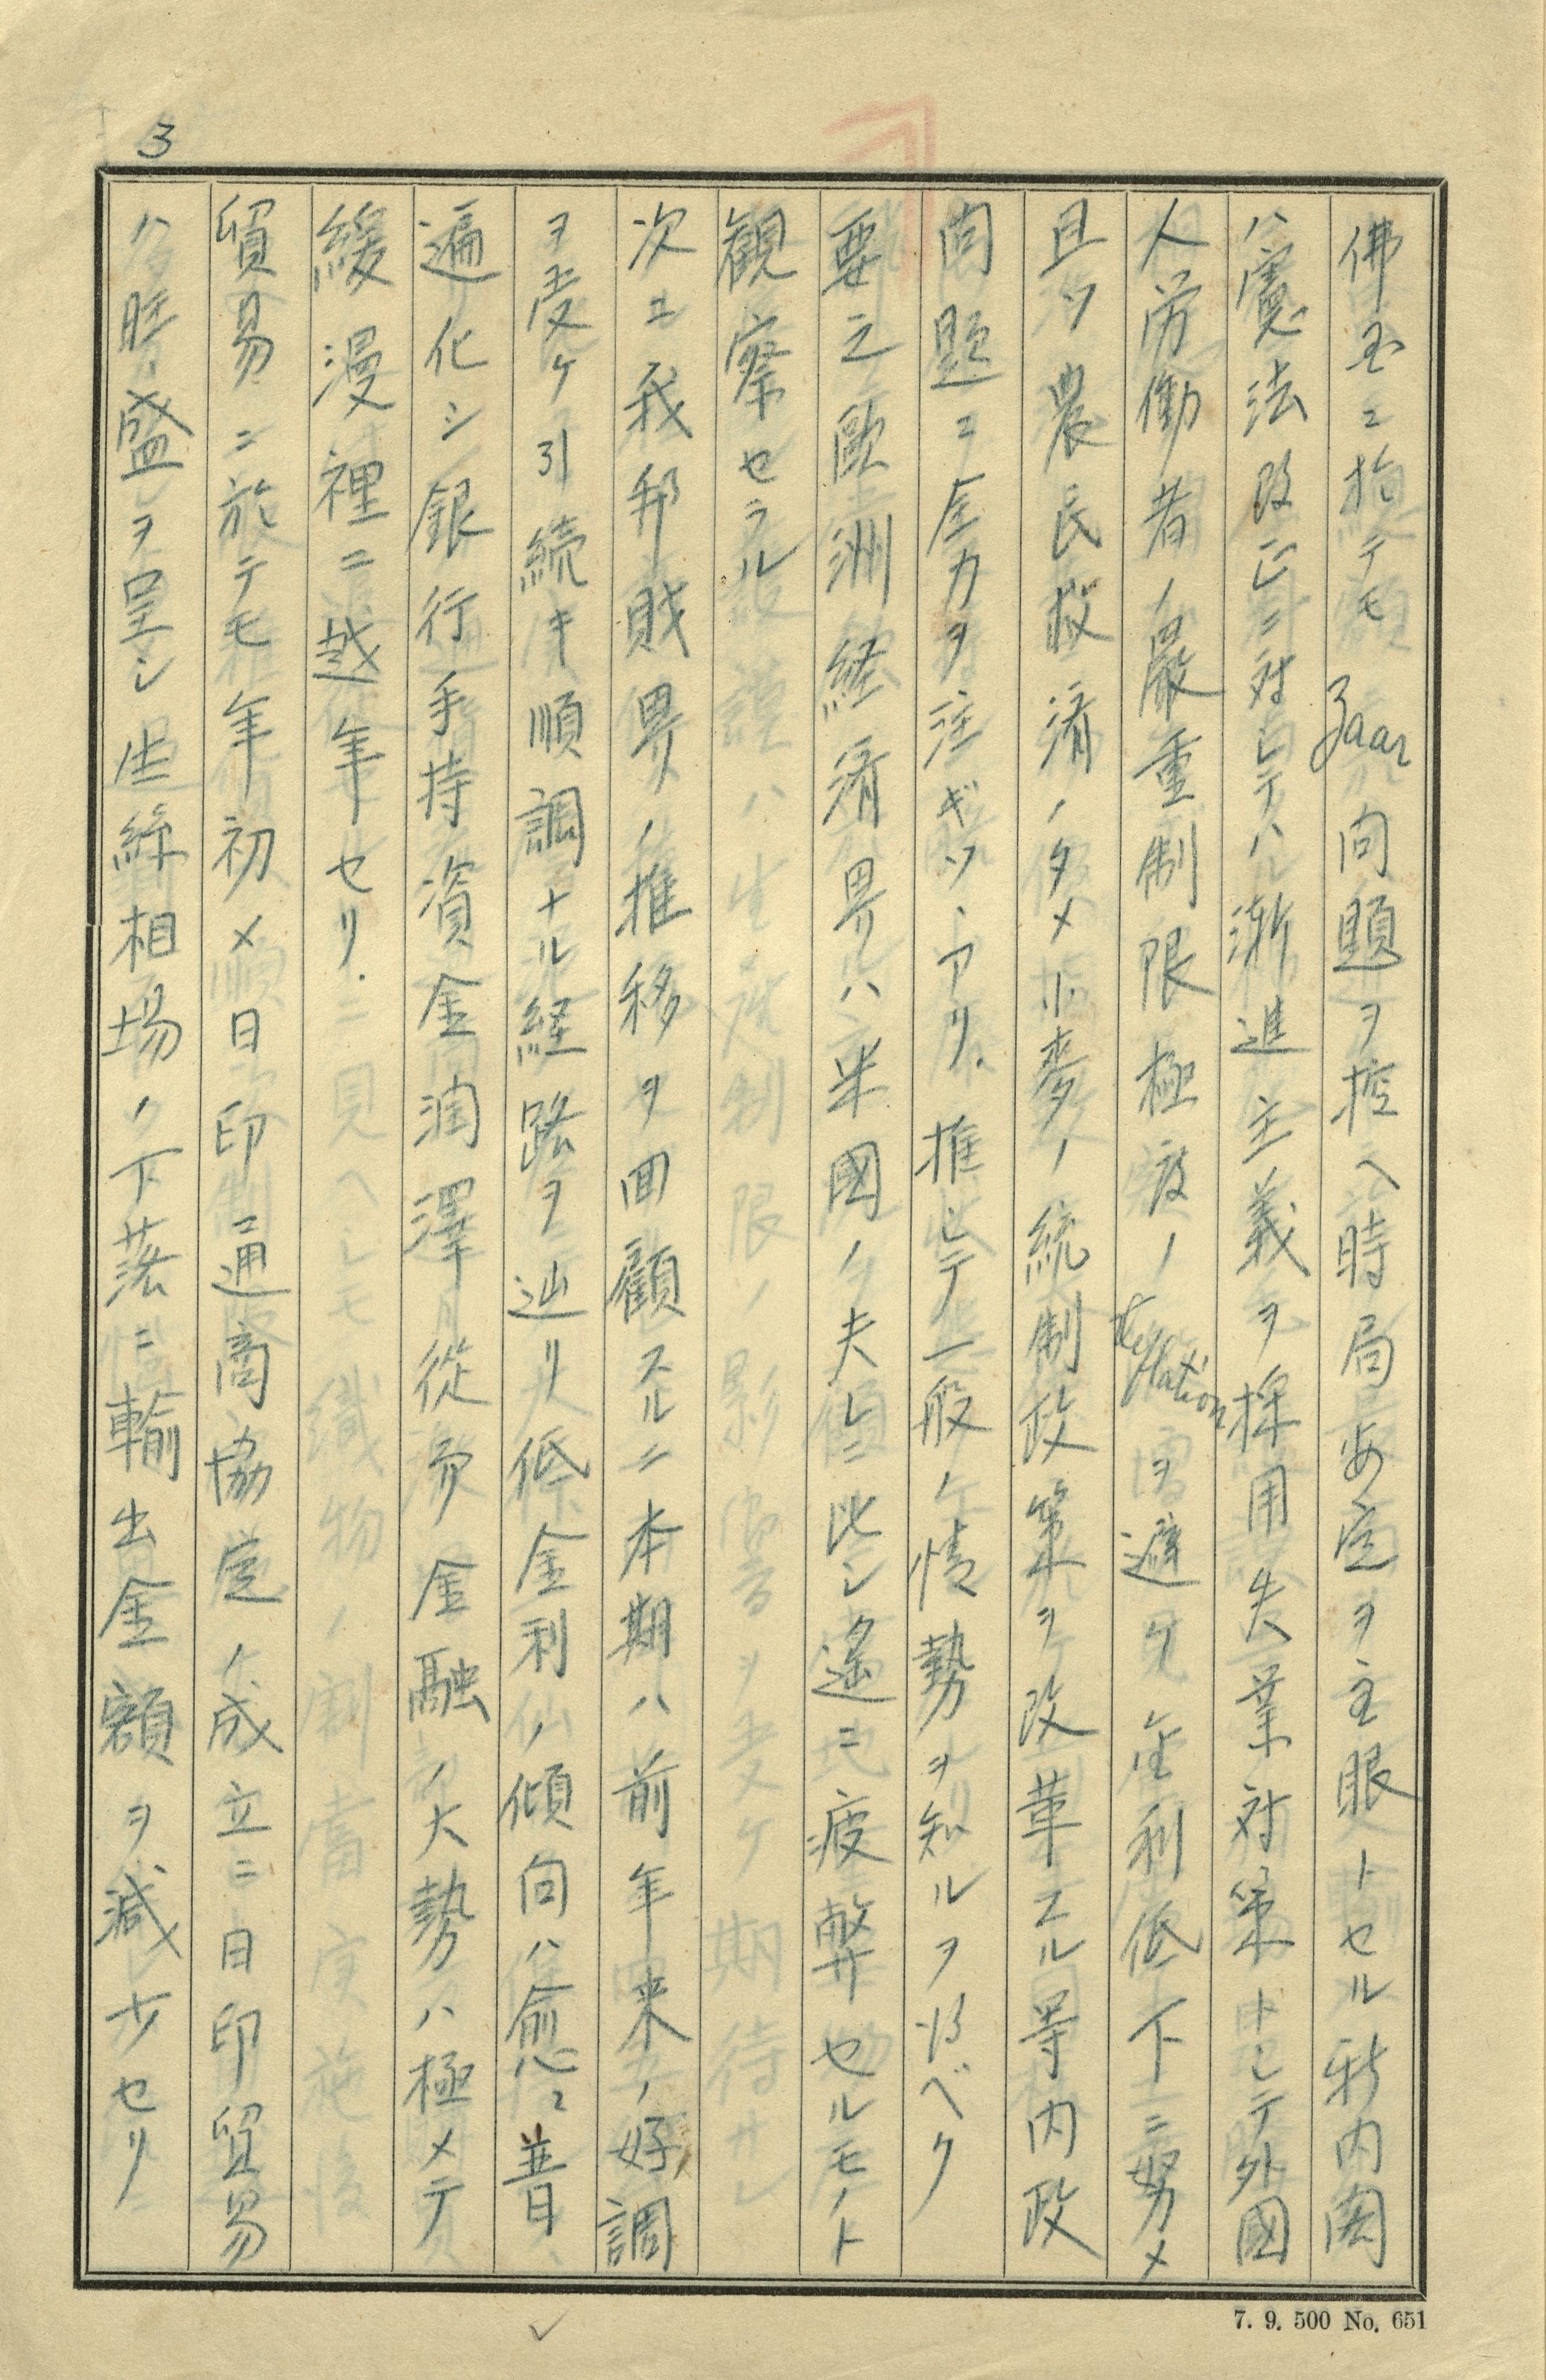 3
佛国ニ於テモ Zaar 問題ヲ控ヘ時局安定ヲ主眼トセル新内閣
ハ憲法改正ニ対シテハ漸進主義ヲ採用失業対策トシテ外國
人労働者ノ嚴重制限極度ノ deflation ヲ避ケ金利低下ニ努メ
且ツ農民救済ノタメ小麥ノ統制政策ヲ改革スル等内政
問題ニ全力ヲ注ギツヽアリ.推シテ一般ノ情勢ヲ知ルヲ得ベク
要之歐洲経済界ハ米國ノ夫レニ比シ遙ニ疲弊セルモノト
観察セラル
次ニ我邦財界ノ推移ヲ回顧スルニ本期ハ前年来ノ好調
ヲ受ケ引続キ順調ナル経路ヲ辿リ低金利ノ傾向ハ愈々普
遍化シ銀行手持資金潤澤従為金融ノ大勢ハ極メテ
緩漫裡ニ越年セリ.
貿易ニ於テモ年初メ日印通商協定ノ成立ニ日印貿易
ハ旺盛ヲ呈シ生絲相場ノ下落ニ輸出金額ヲ減少セリ
7. 9. 500 No. 651